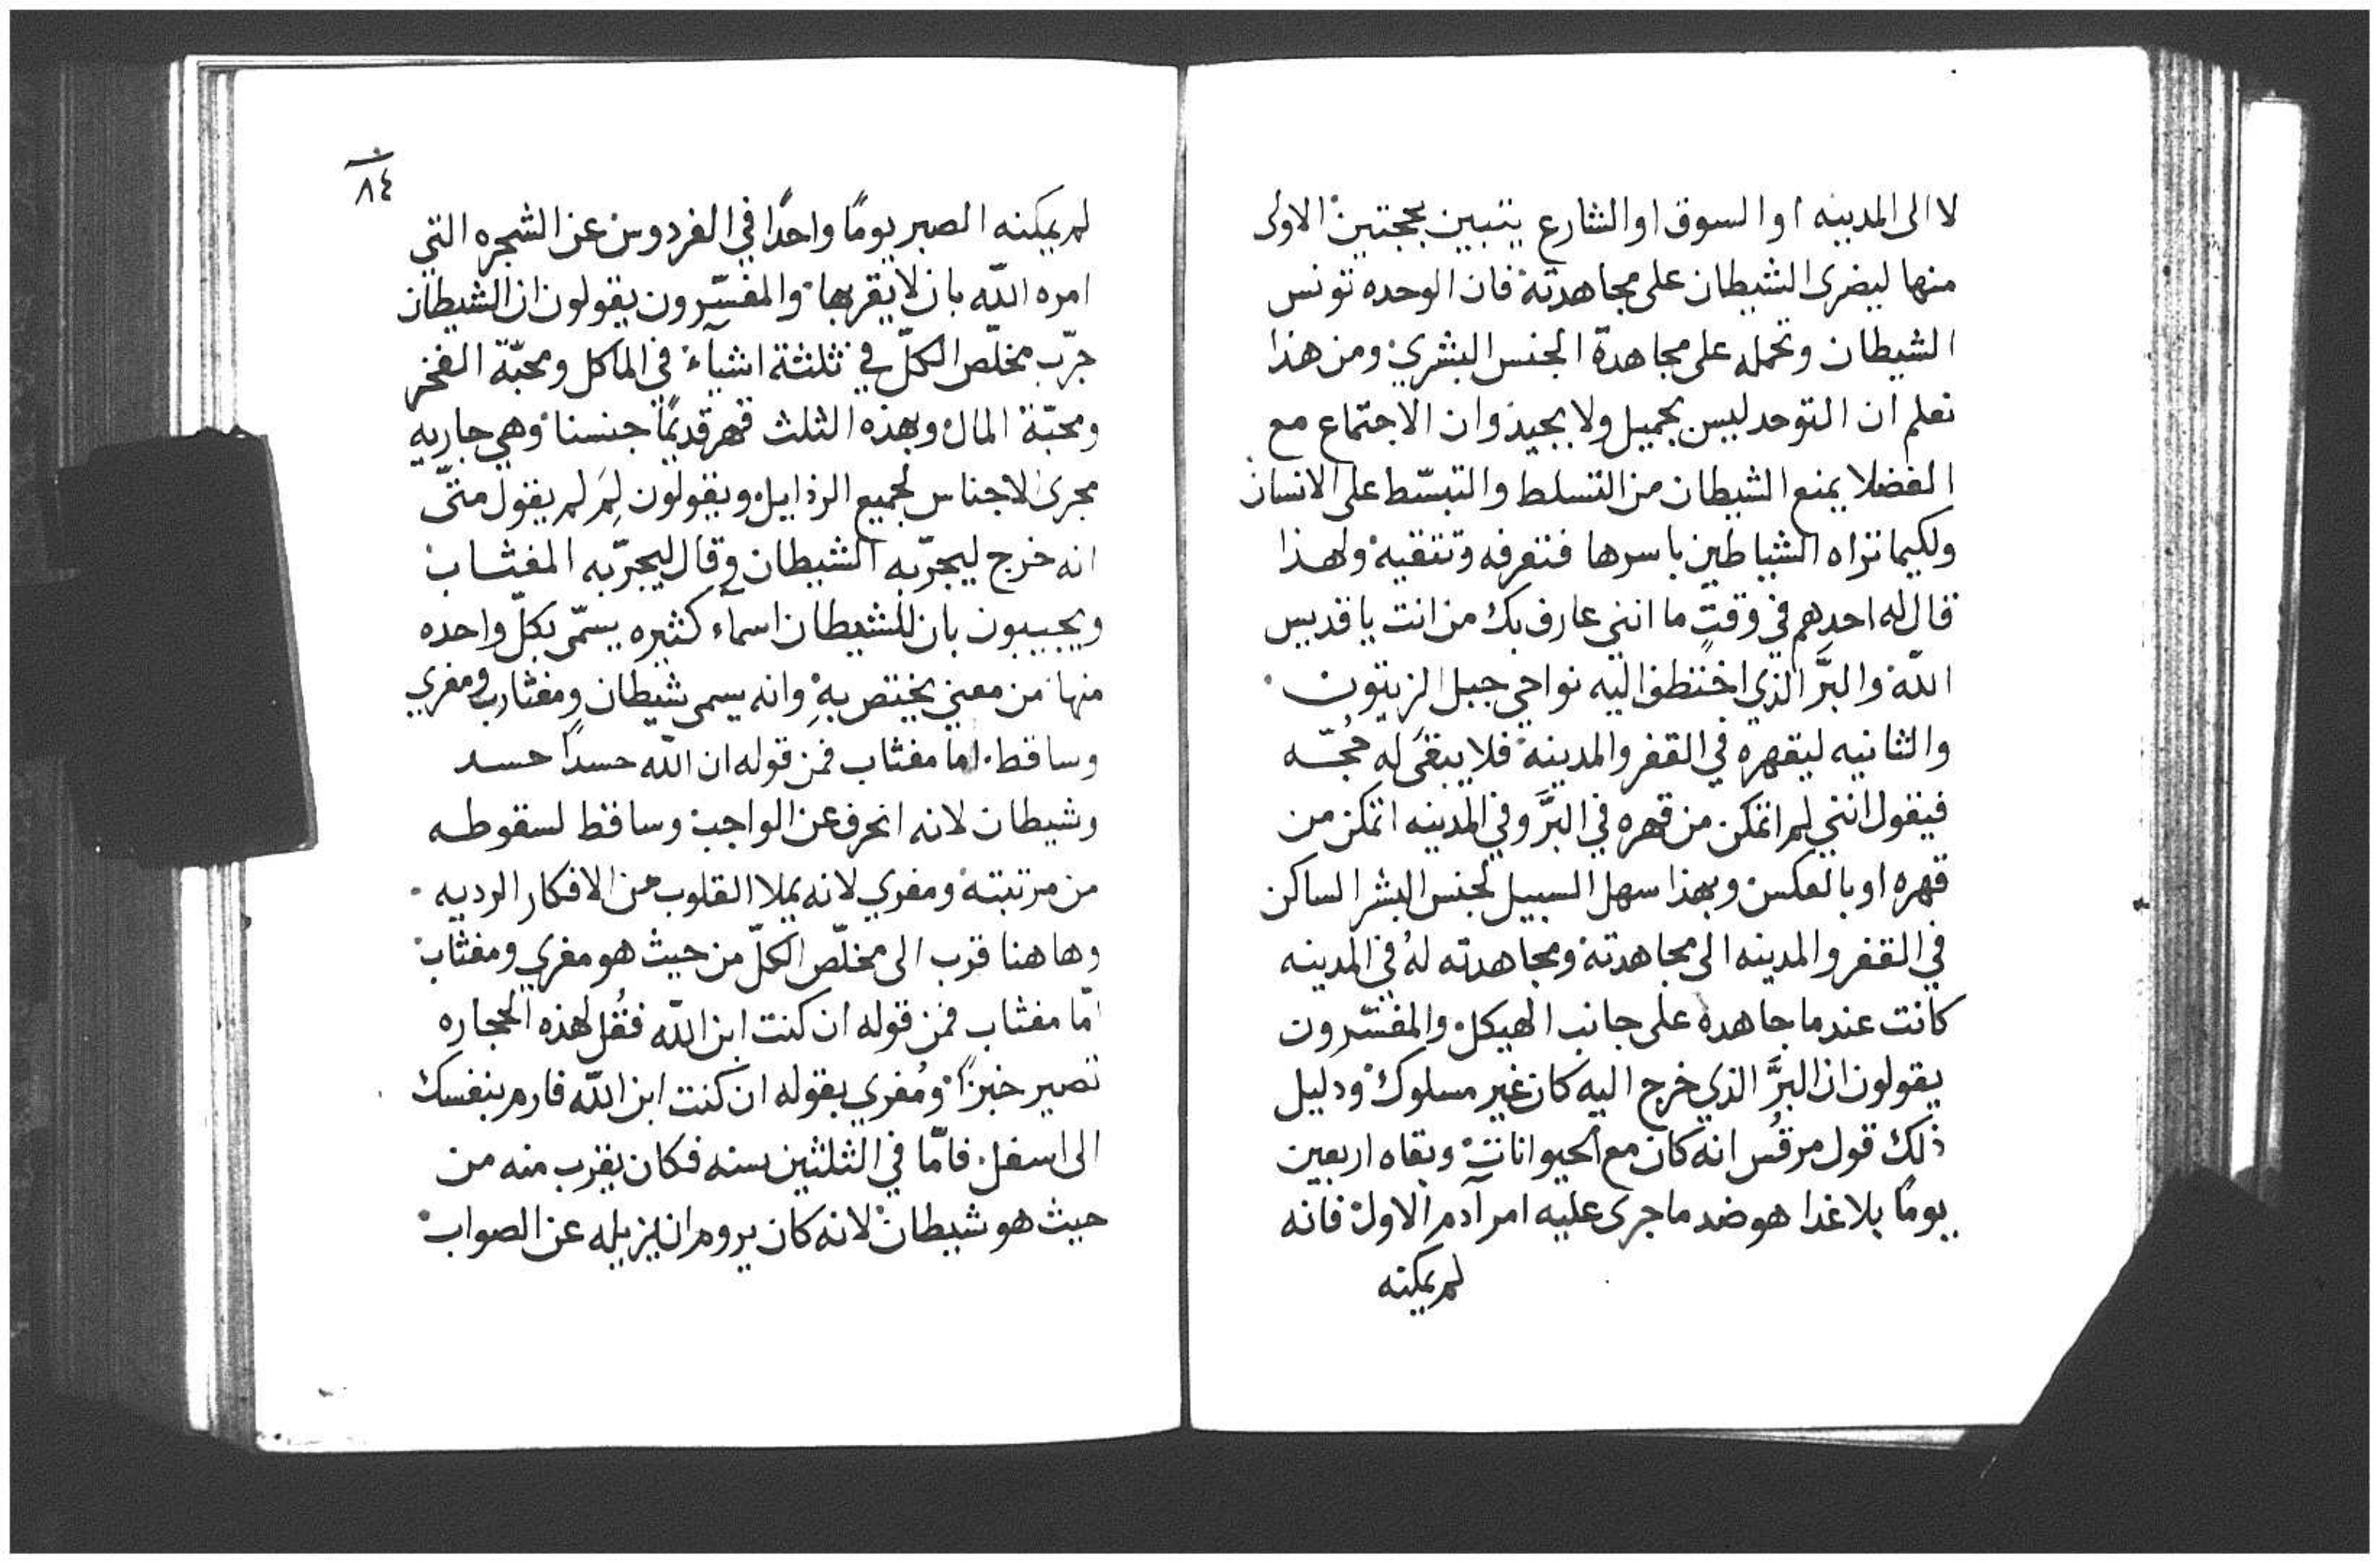 لا الى المدينه او السوق او الشارع يتبين بحجتين الاولى
منها ليضرى الشيطان على مجاهدته فان الوحده تونس
الشيطان وتحمله على مجاهدة الجنس البشري ومن هذا
نعلم ان التوحد ليس بجميل ولا بجيد وان الاجتماع مع
الفضلا يمنع الشيطان من التسلط والتبسّط على الانسان
ولكيما تراه الشياطين باسرها فتعرفه وتتقيه ولهذا
قال له احدهم في وقتٍ ما انني عارف بك من انت يا قديس
اللّه والبَرَّ الذي اختطف اليه نواحي جبل الزيتون
والثانيه ليقهره في القفر والمدينه فلا يبقى له حُجّه
فيقول انني لم اتمكن من قهره في البَرَّ وفي المدينه اتمكن من
قهره او بالعكس وبهذا سهل السبيل لجنس البشر الساكن
في القفر والمدينه الى مجاهدته ومجاهدته لهُ في المدينه
كانت عندما جاهده على جانب الهيكل والمفسّرون
يقولون ان البرَّ الذي خرج اليه كان غير مسلوك ودليل
ذلك قول مرقُس انه كان مع الحيوانات وبقاه اربعين
يومًا بلا غدا هو ضد ما جرى عليه امر آدم الاول فانه
لم يمكنه
٨٤
لم يمكنه الصبر يومًا واحدًا في الفردوس عن الشجره التي
امره اللّه بان لا يقربها والمفسّرون يقولون ان الشيطان
جرّب مخلّص الكلّ في ثلثة اشيآء في الماكل ومحبّة الفخر
ومحبّة المال وبهذه الثلث قهر قديمًا جنسنا وهي جاريه
مجرى الاجناس لجميع الرذايل ويقولون لِمَ لم يقول متّى
انه خرج ليجرّبه الشيطان وقال ليجرّبه المفثاب
ويجيبون بان للشيطان اسمآء كثيره يسمّى بكلّ واحده
منها من معنى يختص بهِ وانه يسمى شيطان ومفثاب ومغري
وساقط. اما مفثاب فمن قوله ان اللّه حسدًا حسد
وشيطان لانه انحرف عن الواجب وساقط لسقوطه
من مرتبته ومغري لانه يملا القلوب من الافكار الرديه
وهاهنا قرب الى مخلّص الكلّ من حيث هو مغري ومفثاب
امّا مفثاب فمن قوله ان كنت ابن اللّه فقُل لهذه الحجاره
تصير خبزًا ومُغري بقوله ان كنت ابن اللّه فارم بنفسك
الى اسفل. فامّا في الثلثين سنه فكان يقرب منه من
حيث هو شيطان لانه كان يروم ان يزيله عن الصواب